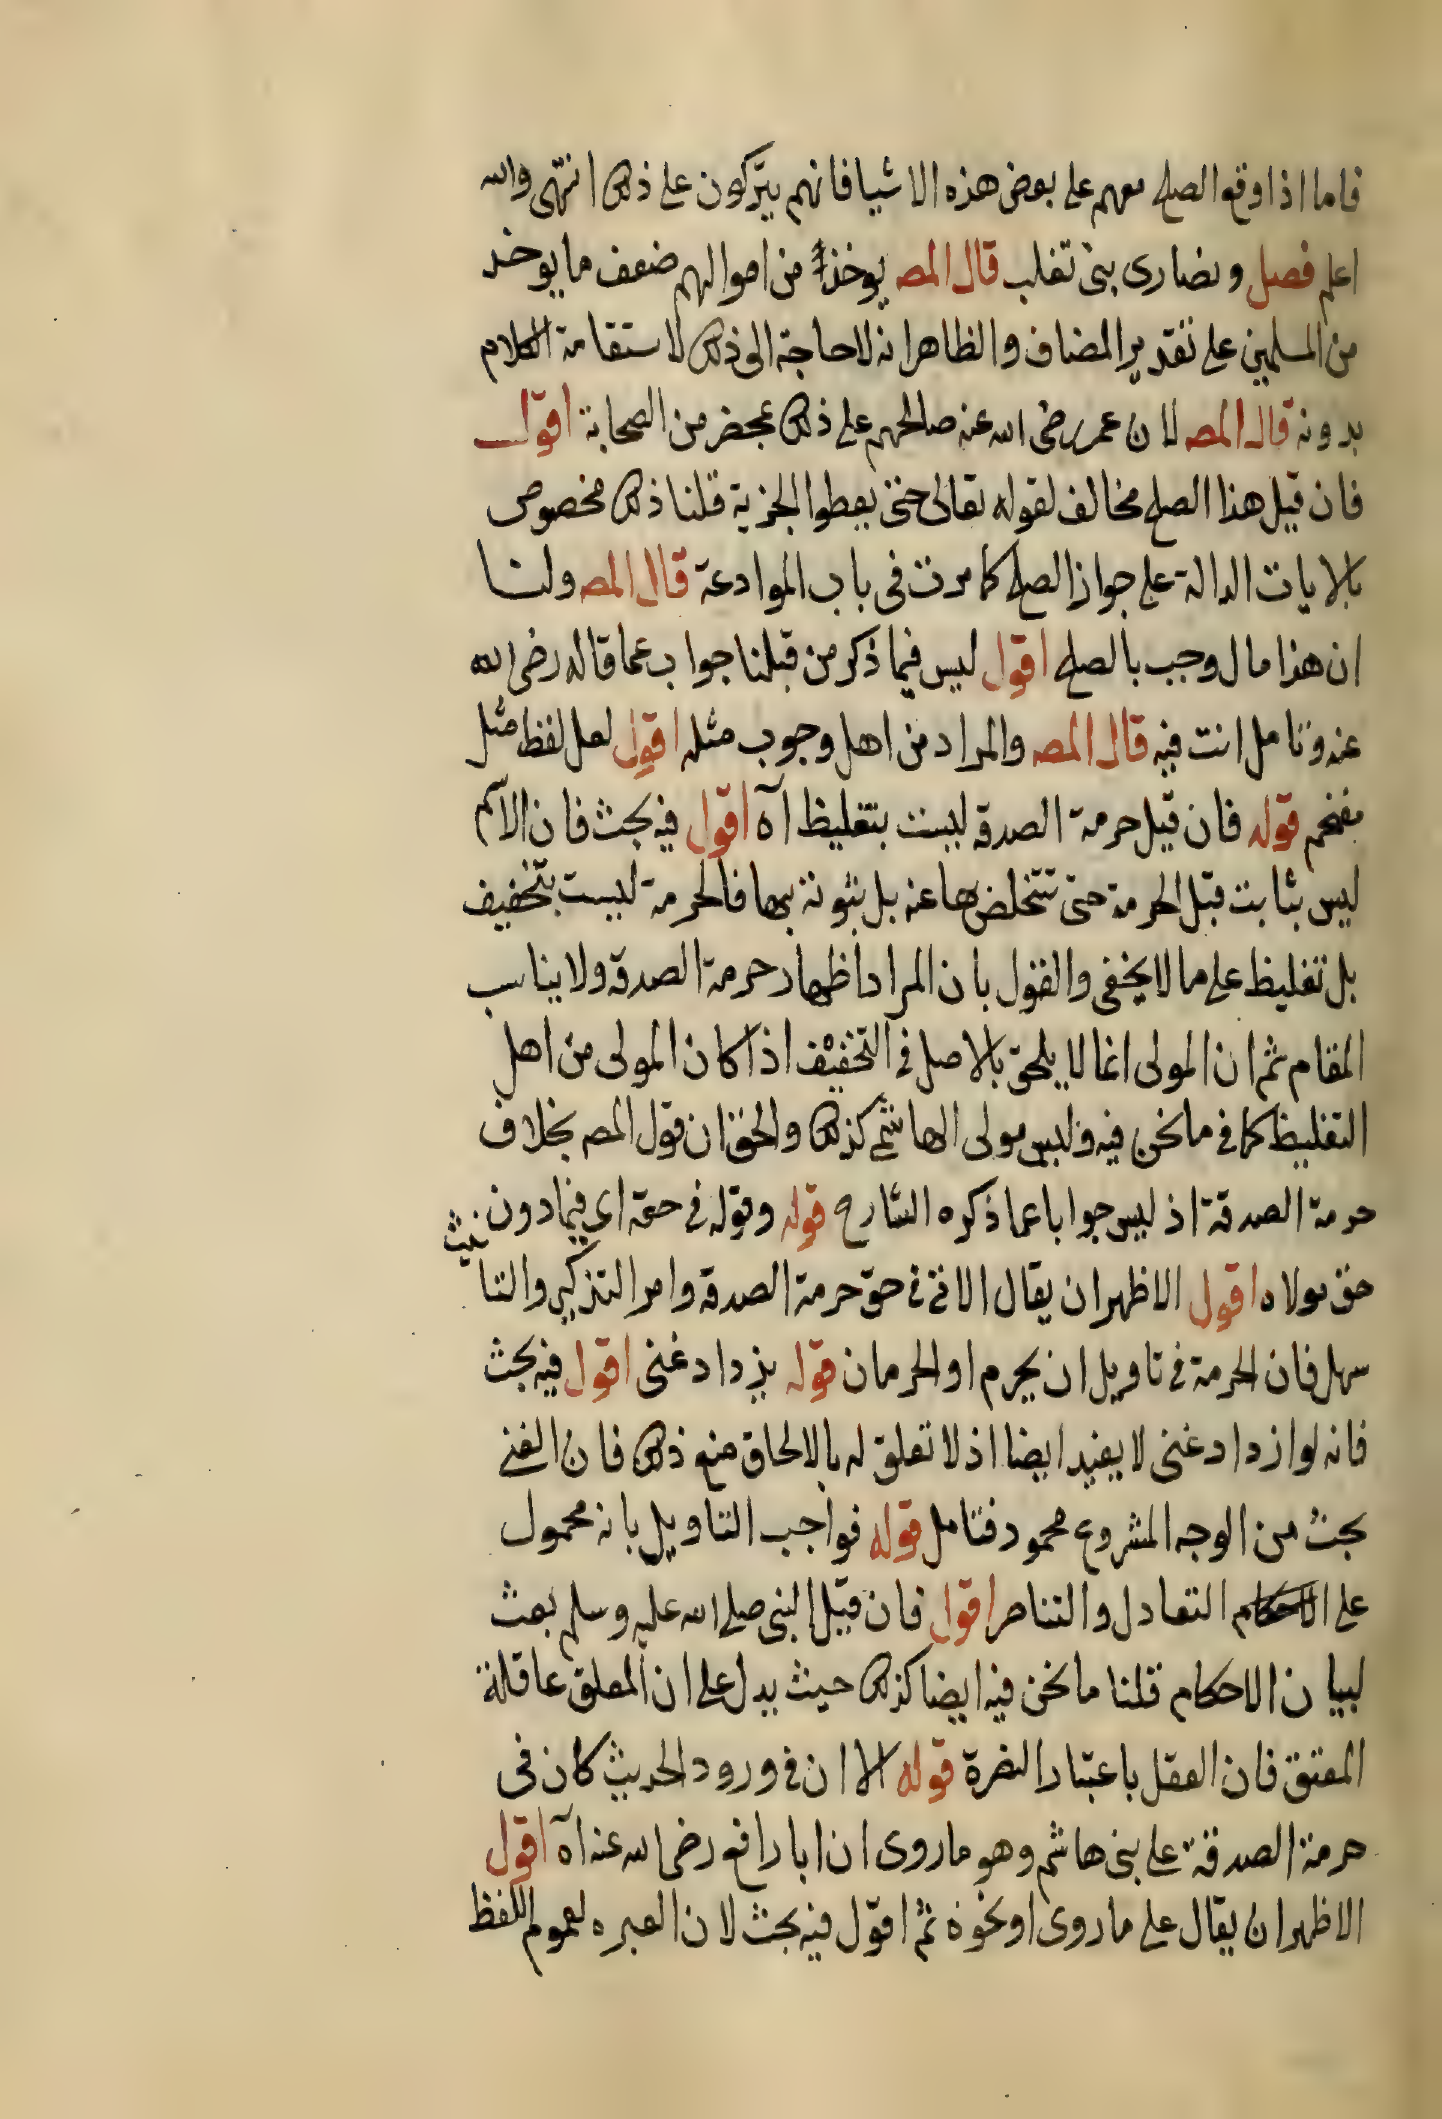 فاما اذا وقع الصلح معهم على بعض هذه الاشيا فانهم يتركون على ذلك انتهى والله
اعلم فصل ونصارى بنى تغلب قال المص يوخذ من اموالهم ضعف ما يوخذ
من المسلمين على تقدير المضاف والظاهر انه لا حاجة الى ذلك لاستقامة الكلام
بدونه قال المص لان عمر رضى الله عنه صالحهم على ذلك بمحضر من الصحابة اقول
فان قيل هذا الصلح مخالف لقوله تعالى حتى يعطوا الجزية قلنا ذلك مخصوص
بالايات الدالة على جواز الصلح كما مرت فى باب الموادعة قال المص ولنا
ان هذا مال وجب بالصلح اقول ليس فيما ذكر من قبلنا جواب عما قاله رضى الله
عنه وتامل انت فيه قال المص والمراد من اهل وجوب مثله اقول لعل لفظ مثل
مفخم قوله فان قيل حرمة الصدقه ليست بتغليظ آه اقول فيه بحث فان الاسم
ليس بثابت قبل الحرمة حتى تتخلص بها عنه بل ثبوته بها فالحرمة ليست بتخفيف
بل تغليظ على ما لا يخفى والقول بان المراد اظهار حرمة الصدقه ولا يناسب
المقام ثم ان المولى انما لا يلحق بالاصل فى التخفيف اذا كان المولى من اهل
التغليظ كما فى ما نحن فيه وليس مولى الهاشمى كذلك والحق ان قول المص بخلاف
حرمة الصدقة اذ ليس جوابا عما ذكره الشارح قوله وقوله فى حقه اى فيما دون
حق مولاه اقول الاظهر ان يقال الا فى حق حرمة الصدقه وامر التذكير والتانيث
سهل فان الحرمة فى تاويل ان يحرم او الحرمان قوله يزداد غنى اقول فيه بحث
فانه لو ازداد غنى لا يفيد ايضا اذ لا تعلق له بالالحاق منع ذلك فان الغنى
بحث من الوجه المشروع محمود فتامل قوله فواجب التاويل بانه محمول
على الاحكام التعادل والتناصر اقول فان قيل النبى صلى الله عليه وسلم بعث
لبيان الاحكام قلنا ما نحن فيه ايضا كذلك حيث يدل على ان المعلق عاقلة
المعتق فان العقل باعتبار النصرة قوله الا ان فى ورود الحديث كان فى
حرمة الصدقة على بنى هاشم وهو ما روى ان ابا رافع رضى الله عنه آه اقول
الاظهر ان يقال على ما روى او نحوه ثم اقول فيه بحث لان العبره لعموم اللفظ